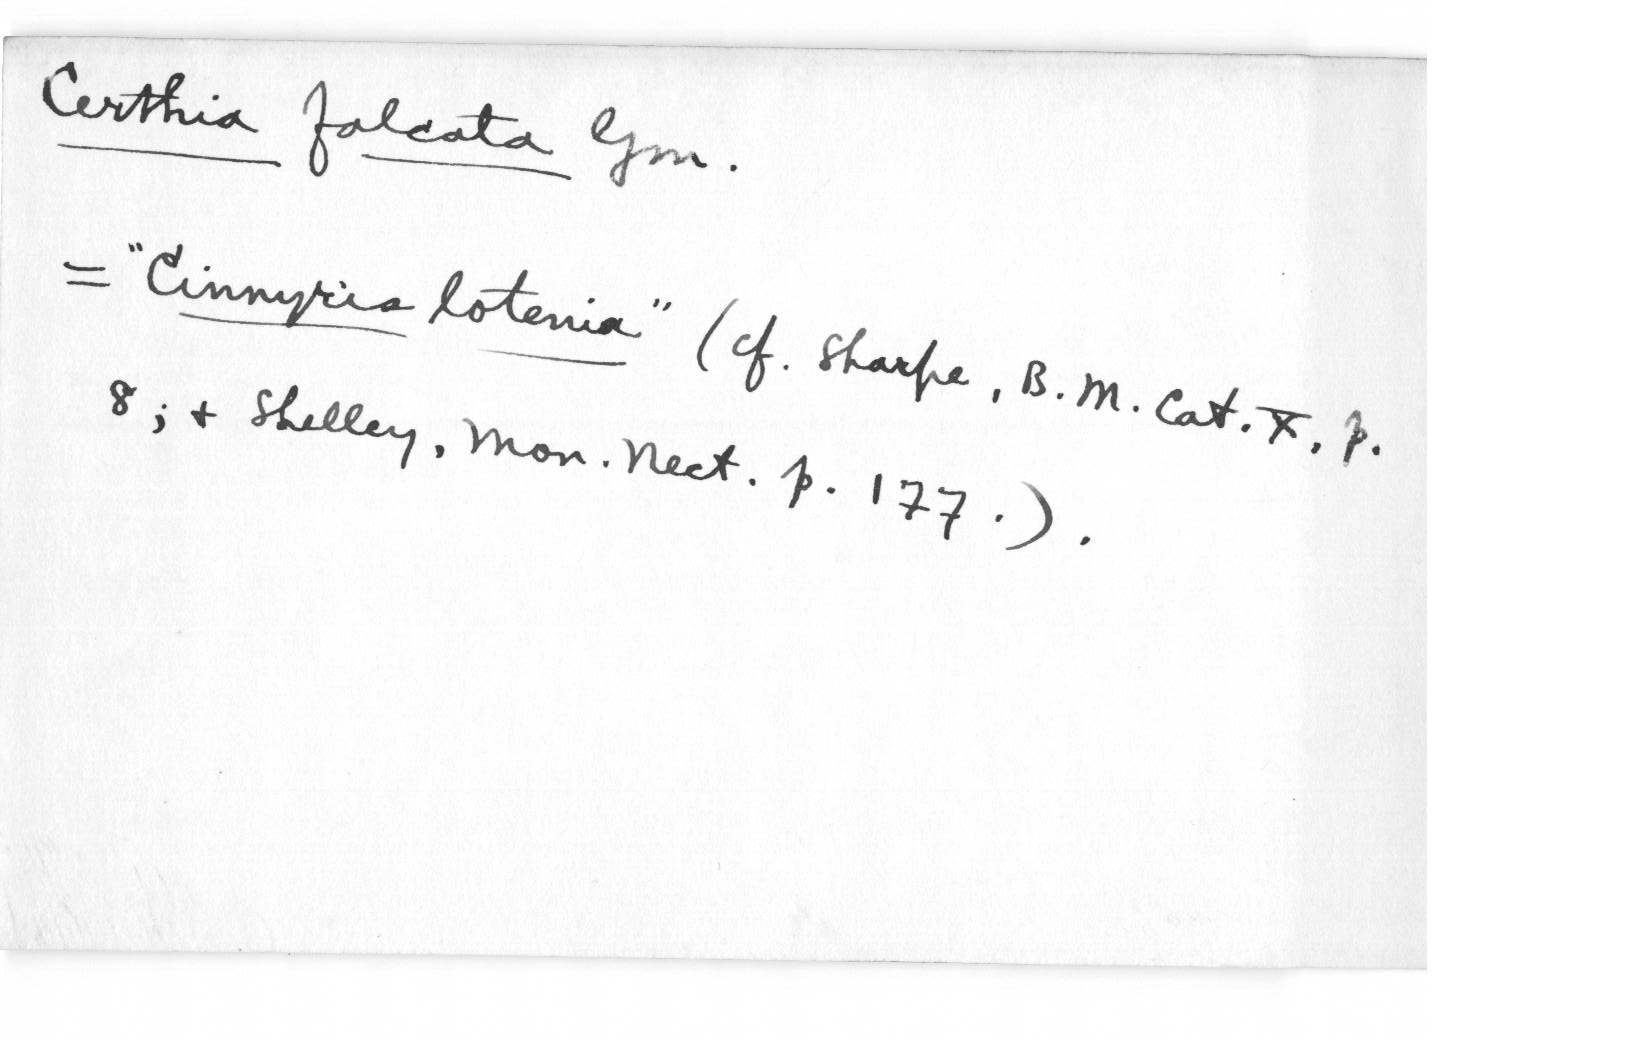 Certhia falcata Gm.
= "Cinnyris lotenia" (cf. Sharpe, B. M. Cat. X, p.
8; + Shelley, Mon. Nect. p. 177.).